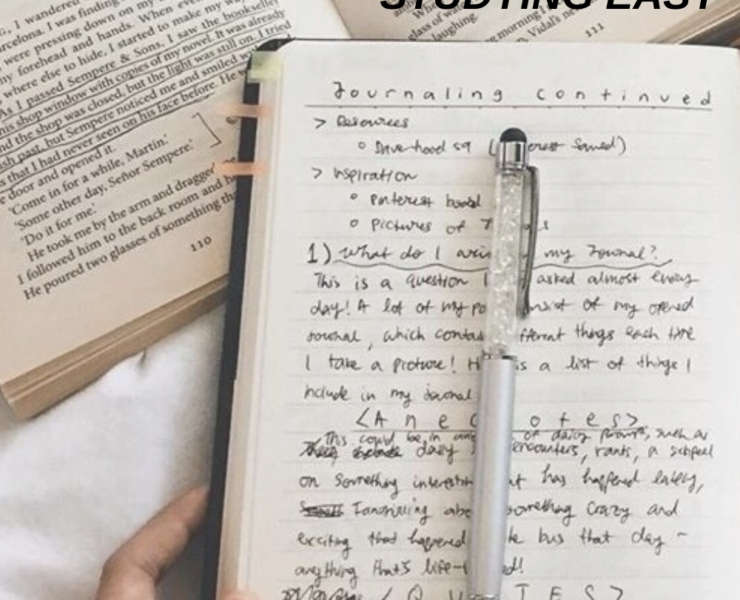 STUDYING EASY
, I wandered
rcelona. I was finding
were pressing down on my
my forehead and hands. When eve
where else to hide, I started to make my wa
As I passed Sempere & Sons, I saw the bookseller
his shop window with copies of my novel. It was already
nd the shop was closed, but the light was still on. I tried
sh past, but Sempere noticed me and smiled w
s that I had never seen on his face before. He w
e door and opened it.
'Come in for a while, Martín.'
'Some other day, Señor Sempere.'
'Do it for me.'
He took me by the arm and dragged
I followed him to the back room and h
He poured two glasses of something tha
110
glass of w
laughing.
morning
Vidal's ne
111
Journaling continued
> Resources
> Inspiration
Pinterest board
Pictures of
1) What do I my Journal?
This is a question I asked almost every
day! A lot of my po of my opened
journal, which conta fferent things each time
I take a picture! is a list of things I
include in my journal
<Anec otes>
This could be in of daisy prompts, such as
daisy encounters, rants, a
on something interest has happened lately,
something crazy and
exciting that happened bus that day -
anything that's life- d!